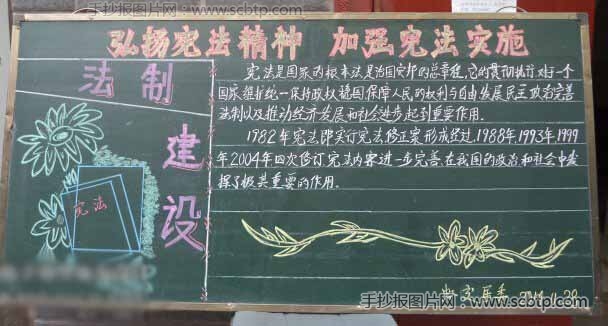 手抄报图片网：www.scbtp.com
弘扬宪法精神 加强宪法实施
法制
建
设
宪法
宪法是国家的根本法是治国安邦的总章程，它的贯彻执行对于一个
国家维护统一保持政权稳固保障人民的权利与自由发展民主政治完善
法制以及推动经济发展和社会进步起到重要作用。
1982年宪法即实行宪法修正案形成经过1988年、1993年、1999
年2004年四次修订宪法内容进一步完善，在我国的政治和社会中发
挥了极其重要的作用．
手抄报图片网：www.scbtp.com